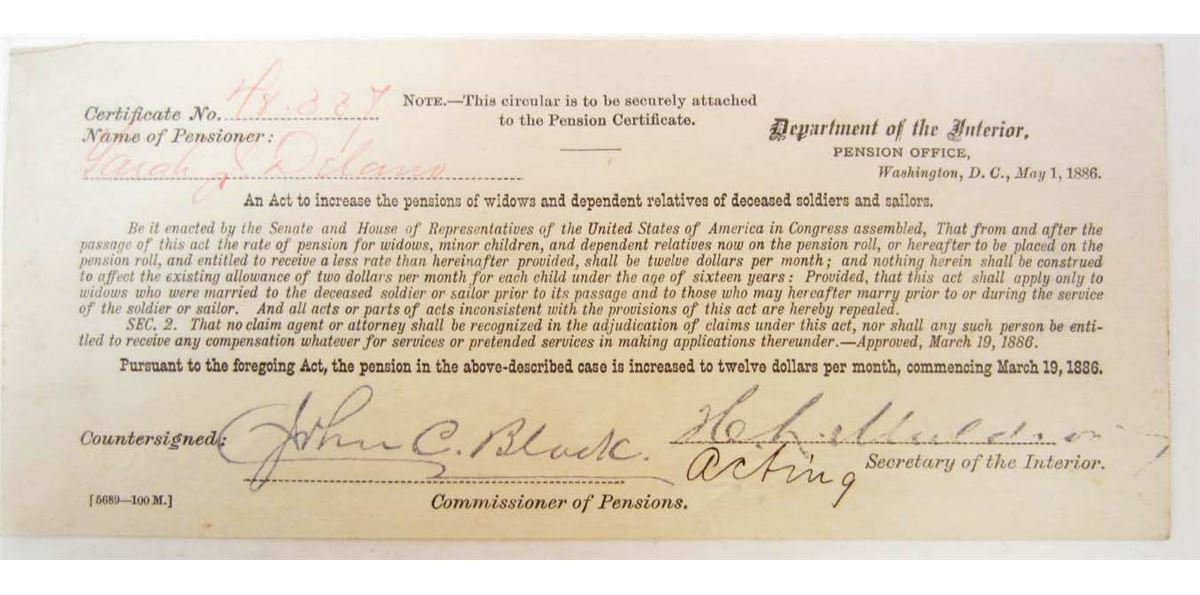 Certificate No. 48.337
NOTE.—This circular is to be securely attached
to the Pension Certificate.
Name of Pensioner:
Sarah J Delano
Department of the Interior,
PENSION OFFICE,
Washington, D. C., May 1, 1886.
An Act to increase the pensions of widows and dependent relatives of deceased soldiers and sailors.
Be it enacted by the Senate and House of Representatives of the United States of America in Congress assembled, That from and after the
passage of this act the rate of pension for widows, minor children, and dependent relatives now on the pension roll, or hereafter to be placed on the
pension roll, and entitled to receive a less rate than hereinafter provided, shall be twelve dollars per month; and nothing herein shall be construed
to affect the existing allowance of two dollars per month for each child under the age of sixteen years: Provided, that this act shall apply only to
widows who were married to the deceased soldier or sailor prior to its passage and to those who may hereafter marry prior to or during the service
of the soldier or sailor. And all acts or parts of acts inconsistent with the provisions of this act are hereby repealed.
SEC. 2. That no claim agent or attorney shall be recognized in the adjudication of claims under this act, nor shall any such person be enti-
tled to receive any compensation whatever for services or pretended services in making applications thereunder.—Approved, March 19, 1886.
Pursuant to the foregoing Act, the pension in the above-described case is increased to twelve dollars per month, commencing March 19, 1886.
Countersigned: John C. Black.
H. L. Muldrow
Acting Secretary of the Interior.
[5689—100 M.]
Commissioner of Pensions.